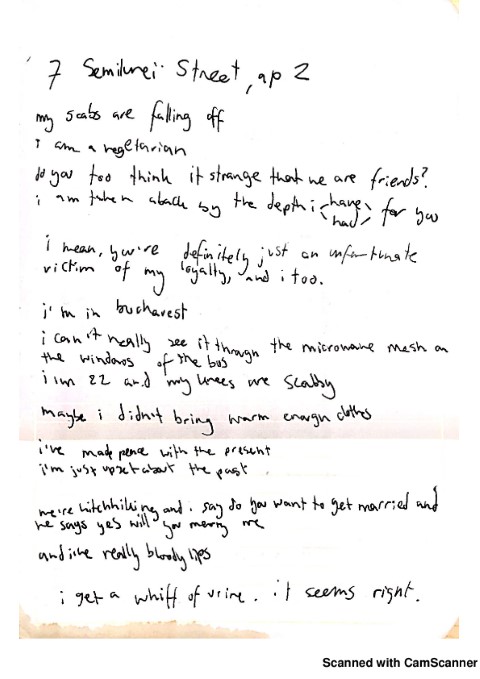 7 Semilunei Street, ap 2
my scabs are falling off
i am a vegetarian
do you too think it strange that we are friends?
i am taken aback by the depth i <have> for you
<had>
i mean, you're definitely just an unfortunate
victim of my loyalty, and i too.
i'm in bucharest
i can't really see it through the microwave mesh on
the windows of the bus
i im 22 and my knees are scabby
maybe i didn't bring warm enough clothes
i've made peace with the present
i'm just upset about the past
we're hitchhiking and i say do you want to get married and
he says yes will you marry me
and i've really bloody lips
i get a whiff of urine. it seems right.
Scanned with CamScanner